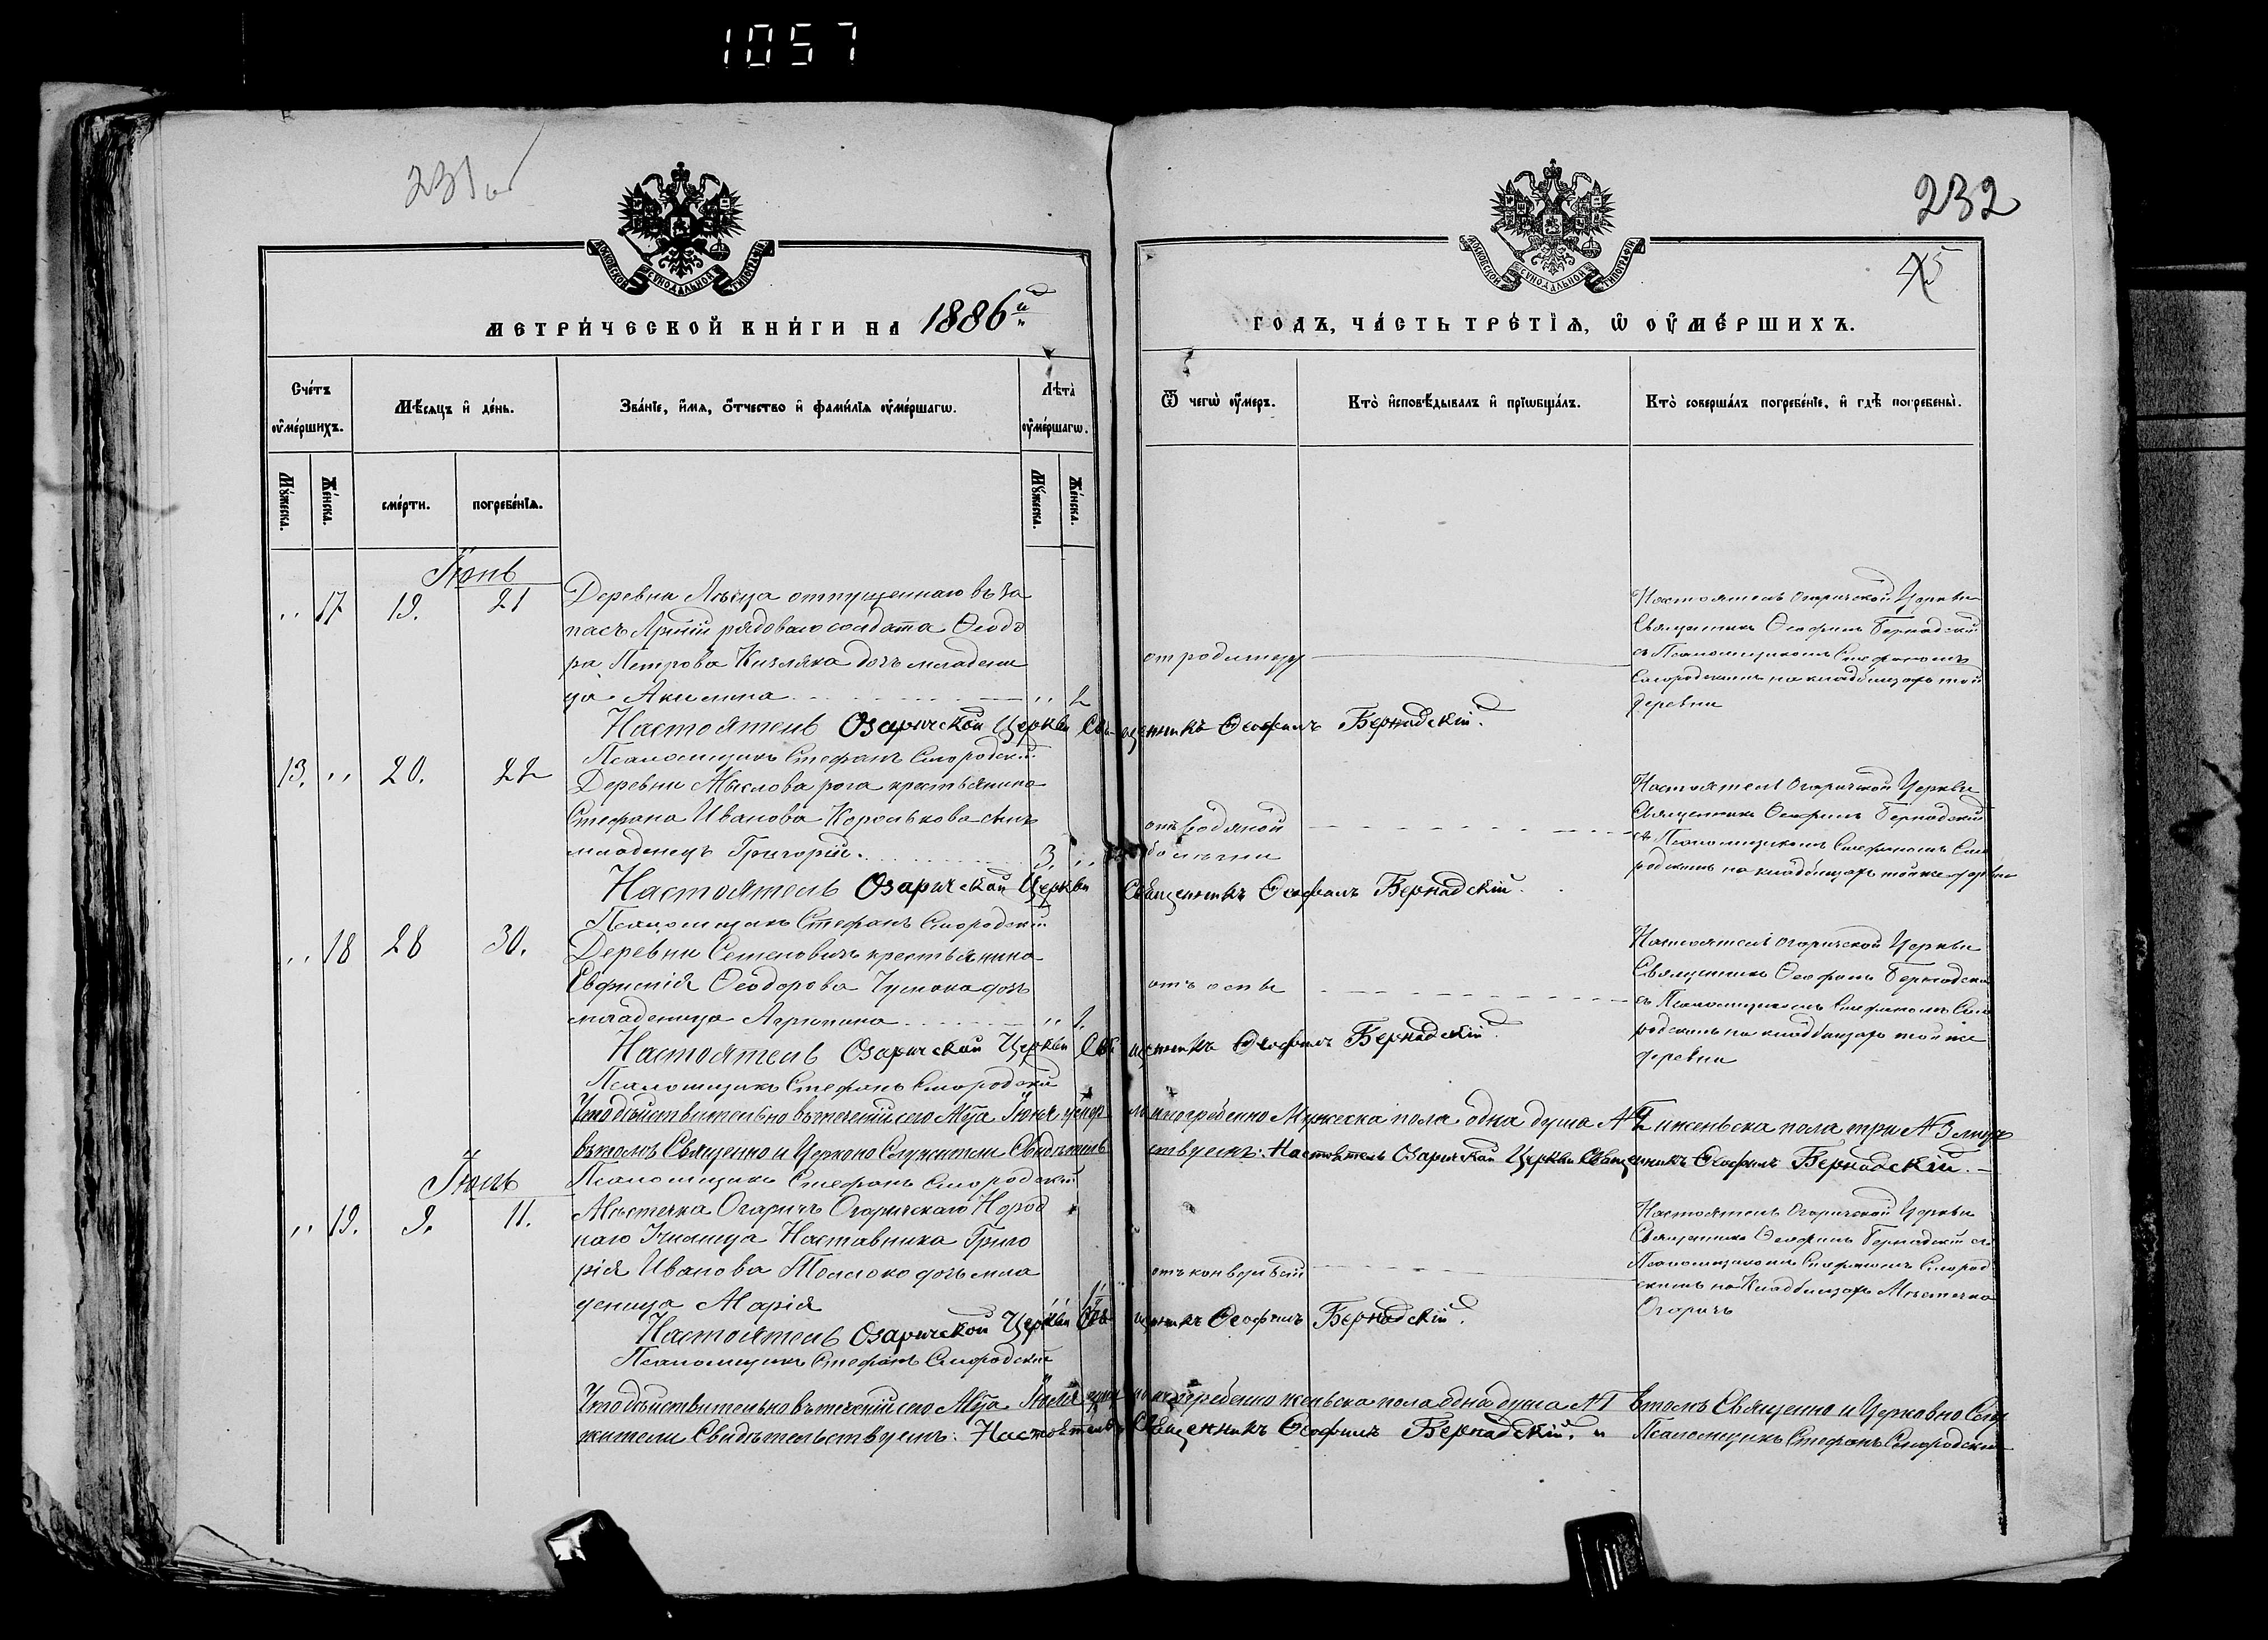 1057
232
45
МОСКОВСКОЙ СѴНОДАЛЬНОЙ ТИПОГРАФІИ
МОСКОВСКОЙ СѴНОДАЛЬНОЙ ТИПОГРАФІИ
МЕТРИ́ЧЕСКОЙ КНИ́ГИ НА 1886й
ГОДЪ, ЧА́СТЬ ТРЕ́ТІЯ, Ѡ ОУ҆МЕ́РШИХЪ.
Сче́тъ оу҆ме́ршихъ.
Мѣ́сяцъ и҆ де́нь.
Зва́нїе, и҆́мя, ѻ҆́тчество и҆ фами́лїя оу҆ме́ршагѡ.
Лѣта̀ оу҆ме́ршагѡ.
Ѿ чегѡ̀ оу҆́меръ.
Кто̀ и҆сповѣ́дывалъ и҆ прїѡбща́лъ.
Кто̀ соверша́лъ погребе́нїе, и҆ гдѣ̀ погребены̀.
Мꙋ́жеска.
Же́нска.
сме́рти.
погребе́нїѧ.
Мꙋ́жеска.
Же́нска.
Іюнь
„ 17 19. 21
Деревни отпущеннаго въ за
пасъ Арміи рядоваго солдата Ѳеодо
ра Петрова Кизляка дочь младени
ца Акилина „ 2
от родимцу
Настоятель Озаричской Церкви
Священникъ Ѳеофилъ Бернадскій
съ Псаломщикомъ Стефаномъ
Смородскимъ на кладбищахъ той
деревни
Настоятель Озаричской Церкви Священникъ Ѳеофилъ Бернадскій.
Псаломщикъ Стефанъ Смородскій
13. „ 20. 22
Деревни Мыслова рога крестьянина
Стефана Иванова Королькова сынъ
младенецъ Григорій. 3. „
отъ водяной
болѣзни
Настоятель Озаричской Церкви
Священникъ Ѳеофилъ Бернадскій
съ Псаломщикомъ Стефаномъ Смо
родскимъ на кладбищахъ той же деревни
Настоятель Озаричской Церкви Священникъ Ѳеофилъ Бернадскій.
Псаломщикъ Стефанъ Смородскій
„ 18 28 30.
Деревни Семеновичъ крестьянина
Евфиміÿ Ѳеодорова дочь
младеница Агрипина „ 1.
отъ оспы
Настоятель Озаричской Церкви
Священникъ Ѳеофилъ Бернадскій
съ Псаломщикомъ Стефаномъ Смо
родскимъ на кладбищахъ той же
деревни
Настоятель Озаричской Церкви Священникъ Ѳеофилъ Бернадскій.
Псаломщикъ Стефанъ Смородскій
Что дѣйствительно въ теченіи сего Мца Іюня умерло и погребенно Мужеска пола одна душа и женьска пола три
въ томъ Священно и Церковно Служители Свидѣтельствуемъ: Настоятель Озаричской Церкви Священникъ Ѳеофилъ Бернадскій.
Псаломщикъ Стефанъ Смородскій
Іюль
„ 19. 9. 11.
Мѣстечка Озаричъ Озаричскаго Народ
наго Училища Наставника Григо
рія Иванова Толлоко дочь мла
деница Марія
отъ конвульсій
Настоятель Озаричской Церкви
Священникъ Ѳеофилъ Бернадскій съ
Псаломщикомъ Стефаномъ Смород
скимъ на Кладбищахъ Мѣстечка
Озаричъ
Настоятель Озаричской Церкви Священникъ Ѳеофилъ Бернадскій.
Псаломщикъ Стефанъ Смородскій
Что дѣйствительно въ теченіи сего Мца Іюля умерло и погребенно женьска пола одна душа въ томъ Священно и Церковно Слу
жители Свидѣтельствуемъ: Настоятель Священникъ Ѳеофилъ Бернадскій. и Псаломщикъ Стефанъ Смородскій